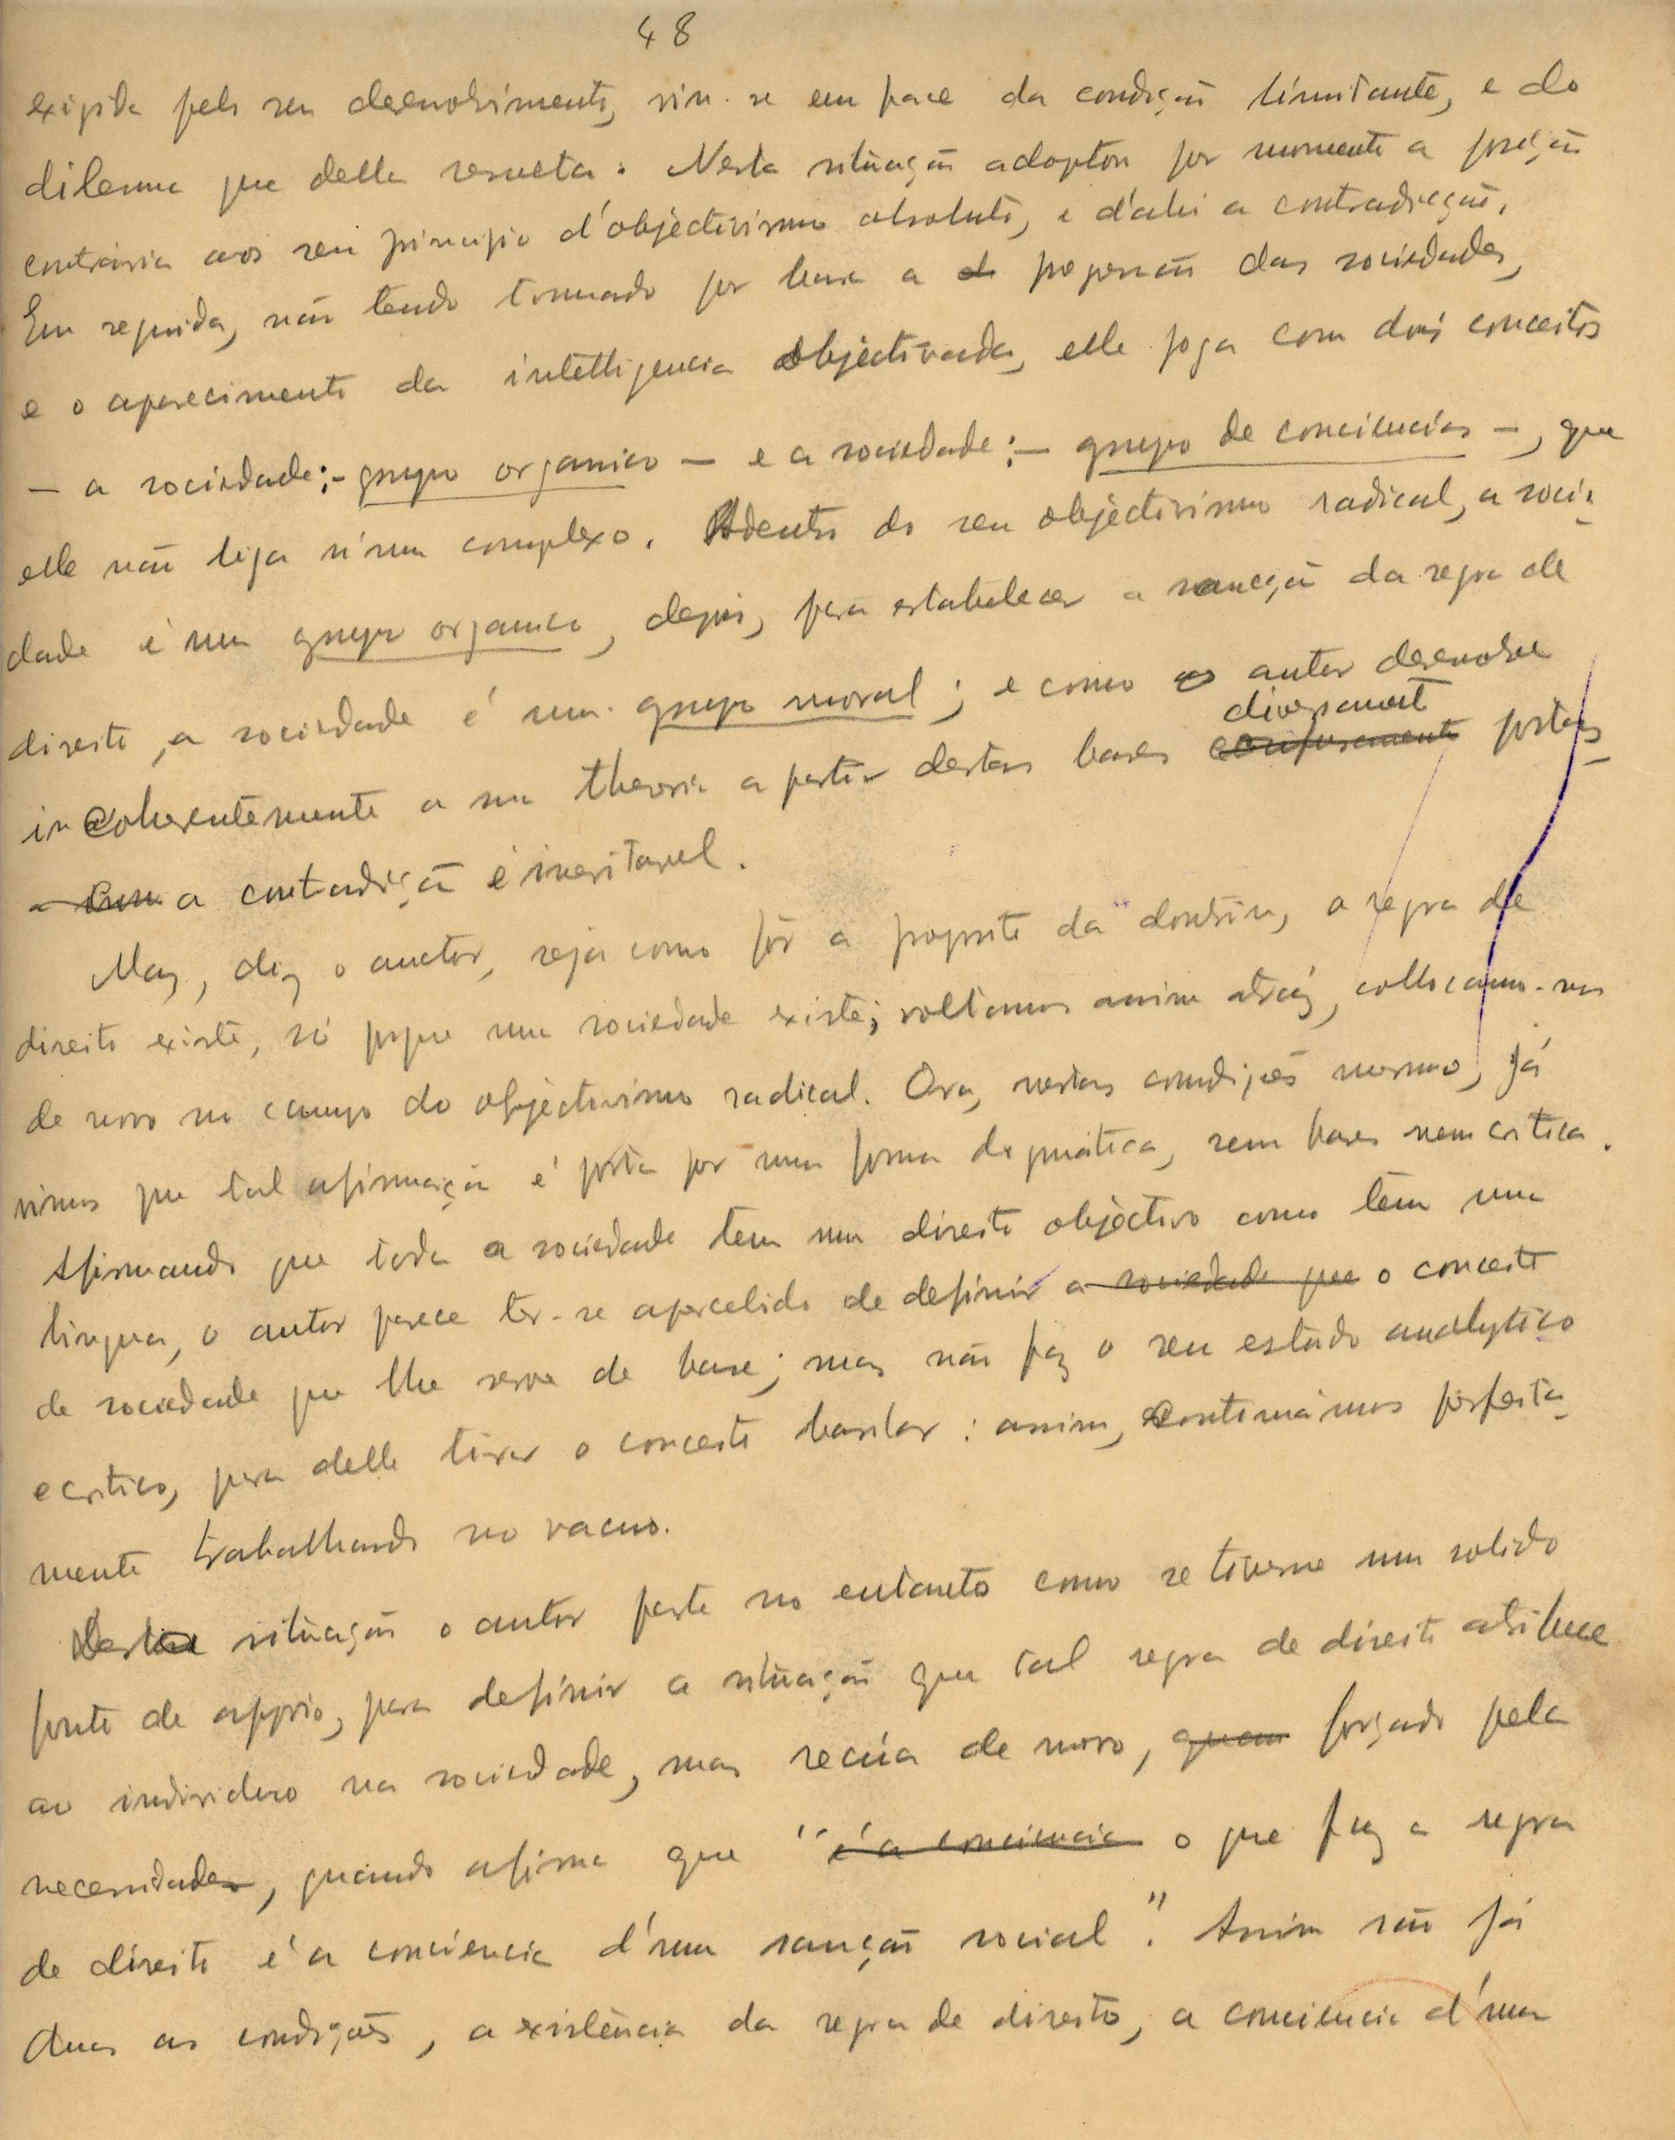 48
exigida pelo seu desenvolvimento, viu-se em face da condição limitante, e do
dilema que della resulta. Nesta situação adoptou por momento a posição
contraria aos seu principio d'objectivismo absoluto, e d'ahi a contradicção.
Em seguida, não tendo tomado por base a progressão das sociedades,
e o aparecimento da intelligencia objectivada, elle joga com dois conceitos
– a sociedade:- grupo organico – e a sociedade:- grupo de conciencias –, que
elle não liga n'um complexo. Adentro do seu objectivismo radical, a socie-
dade é um grupo organico, depois, para estabelecer a sancção da regra de
direito, a sociedade é um grupo moral; e como o autor desenvolve
incoherentemente a sua theoria a partir destas bases confusamente diversamente postas,
a contradição é inevitavel.
Mas, diz o auctor, seja como fôr a proposito da doutrina, a regra de
direito existe, só porque uma sociedade existe; voltamos assim atráz, collocamo-nos
de novo no campo do objectivismo radical. Ora, nestas condições mesmo, já
vimos que tal afirmação é posta por uma forma dogmática, sem bases nem critica.
Afirmando que toda a sociedade tem um direito objectivo como têm uma
lingua, o autor parece ter-se apercebido de definir a sociedade que o conceito
de sociedade que lhe serve de base; mas não faz o seu estudo analytico
e critico, para delle tirar o conceito basilar: assim, continuámos perfeita-
mente trabalhando no vacuo.
Desta situação o autor parte no entanto como se tivesse um solido
ponto de appoio, para definir a situação que tal regra de direito atribue
ao individuo na sociedade, mas recúa de novo, quem forçado pela
necessidade, quando afirma que "é a conciencia o que faz a regra
de direito é a conciencia d'uma sanção social". Assim são já
duas as condições, a existência da regra de direito, a conciencia d'uma